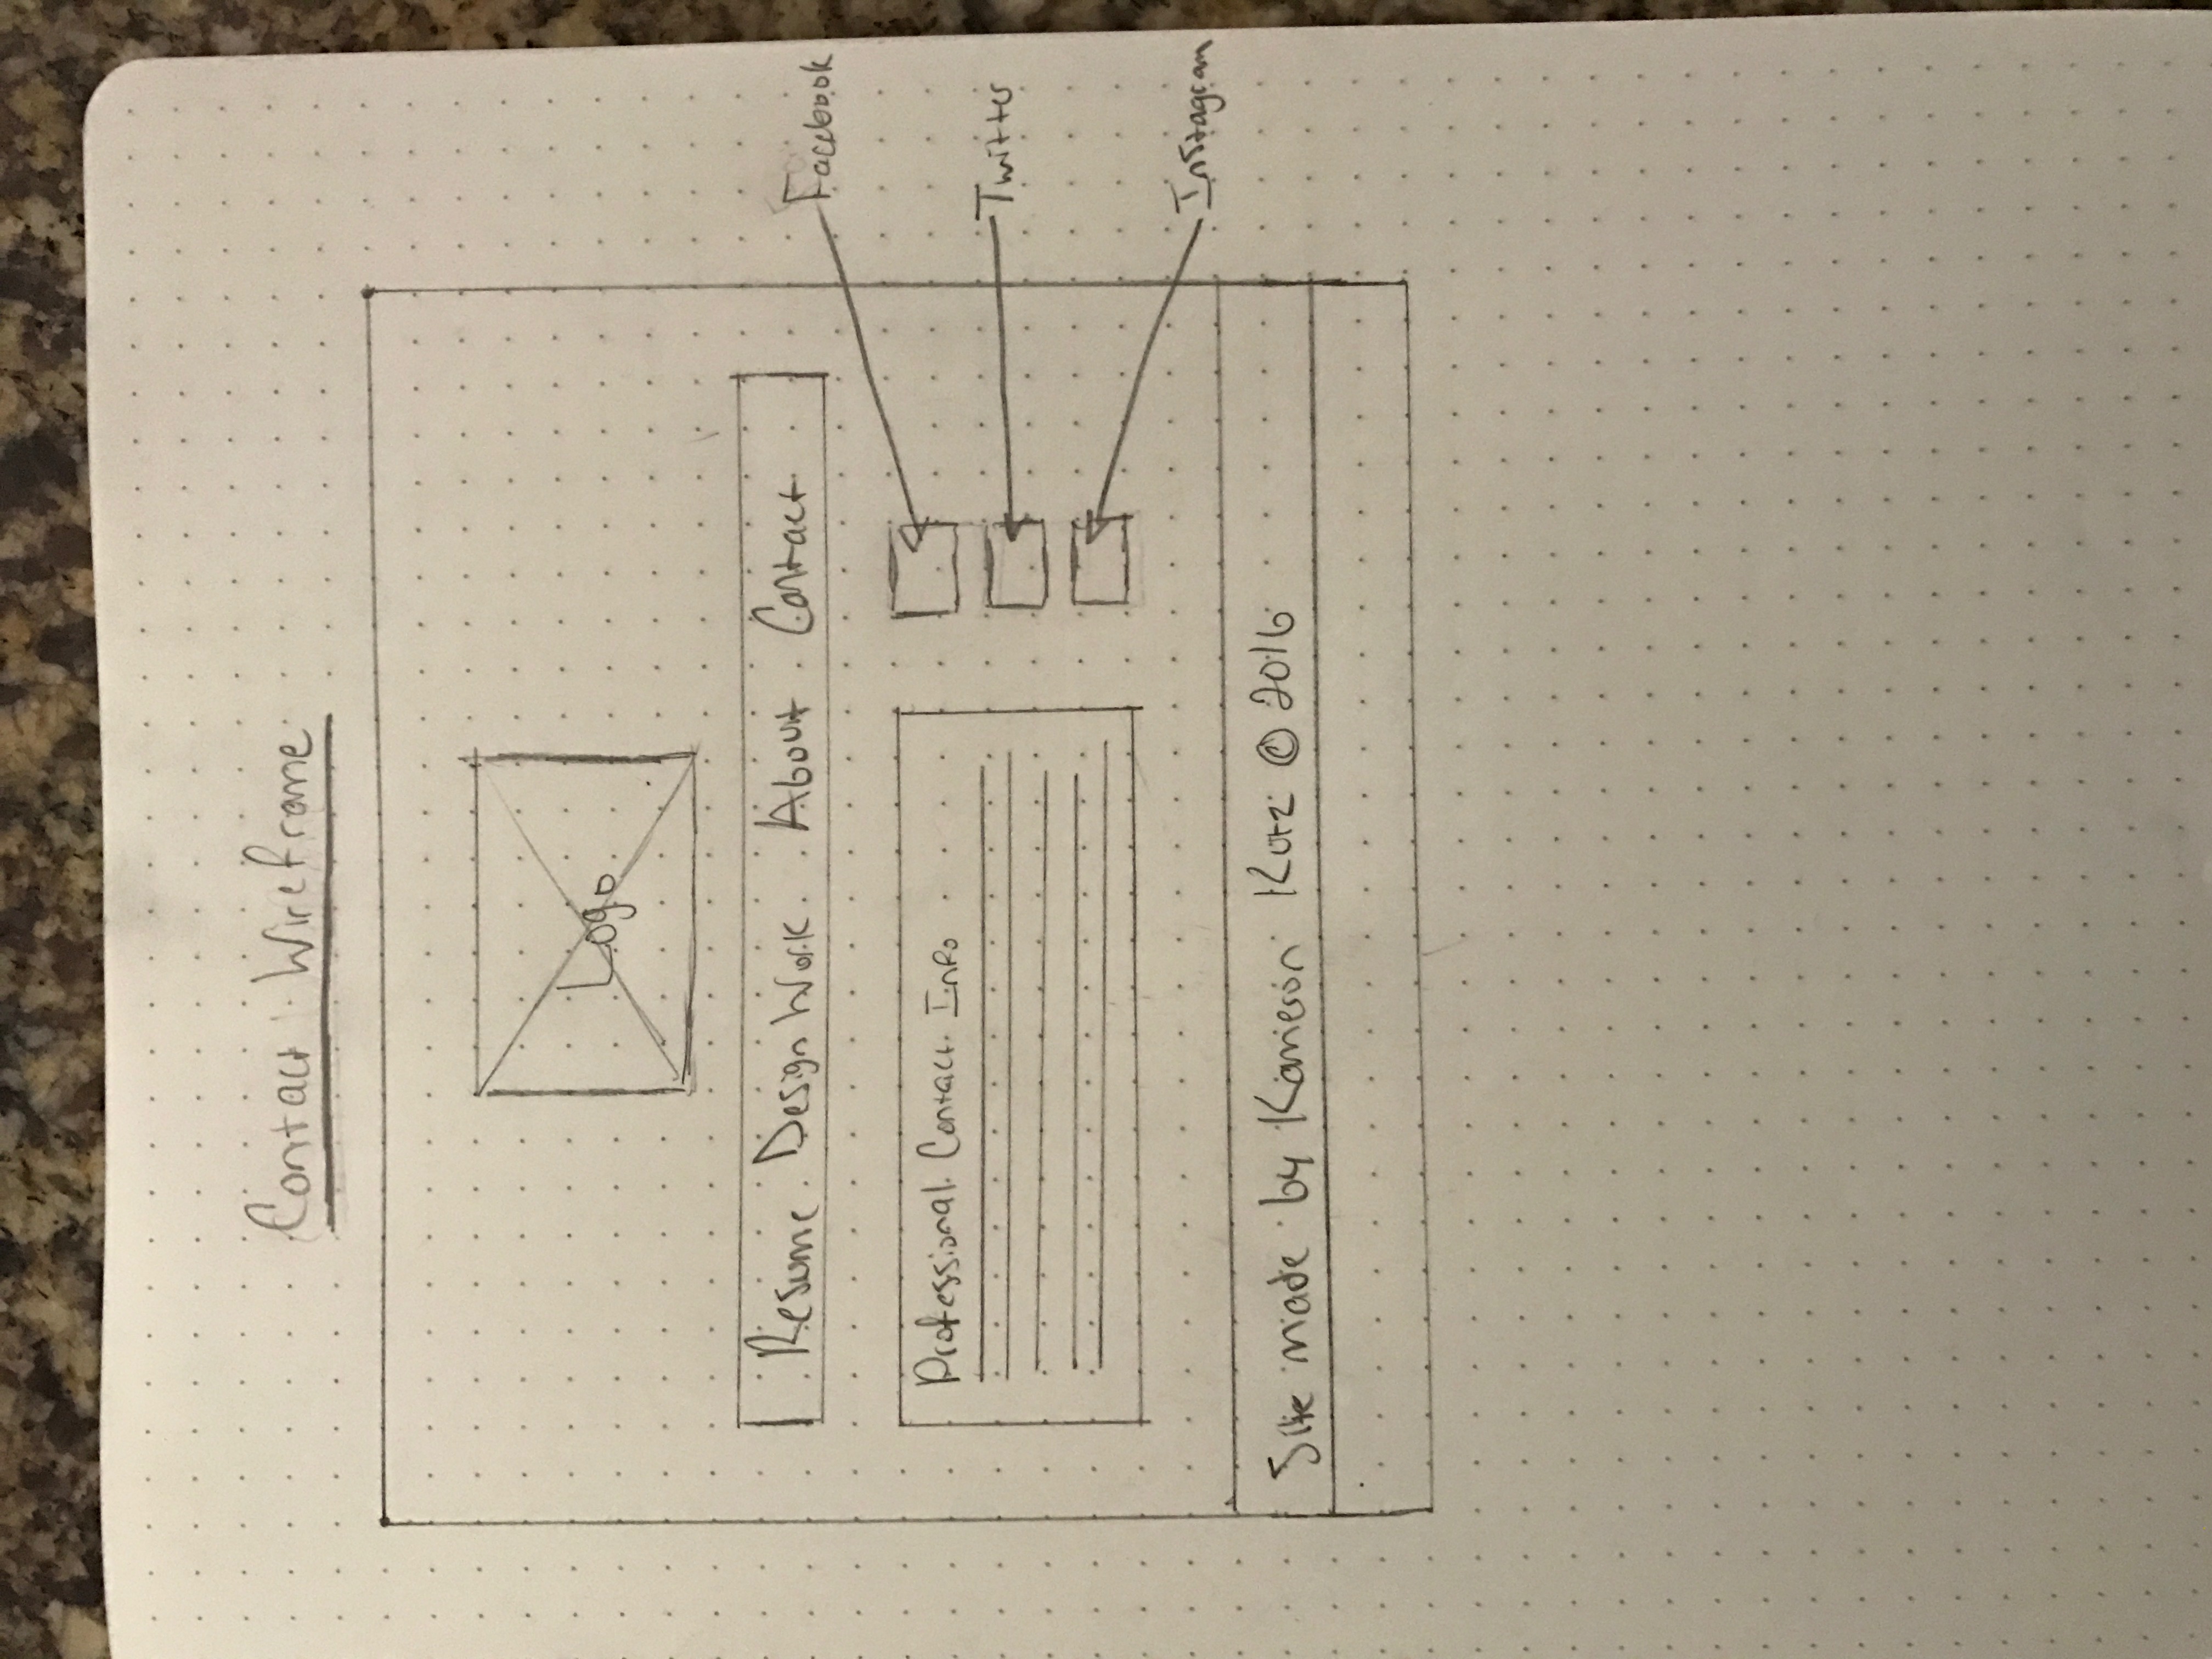 Contact Wireframe
Logo
Resume Design Work About Contact
Facebook
Professional Contact Info
Twitter
Instagram
Site made by Kameron Kutz © 2016